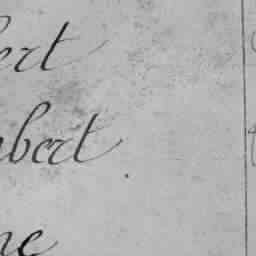 ert
bert
ne